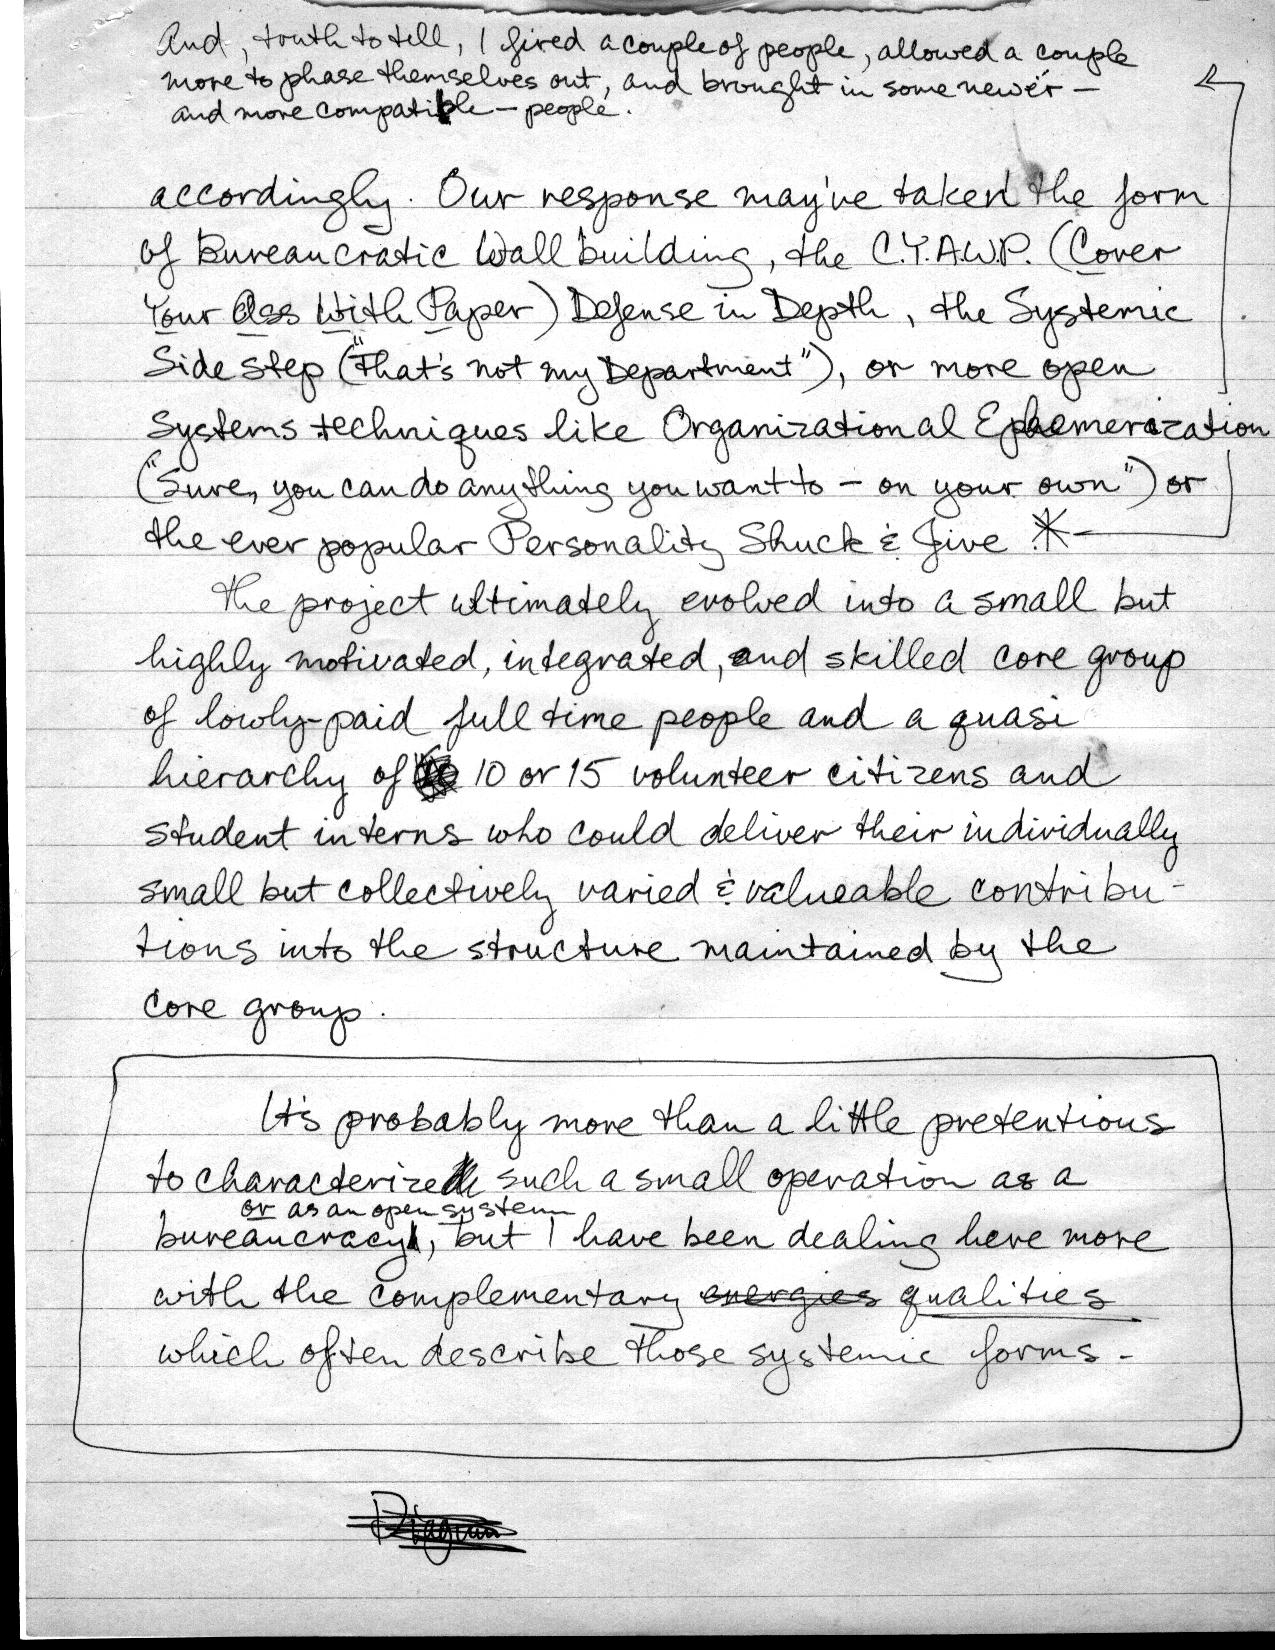 And, truth to tell, I fired a couple of people, allowed a couple
more to phase themselves out, and brought in some newer –
and more compatible – people.
accordingly. Our response may've taken the form
of Bureaucratic Wall building, the C.Y.A.W.P. (Cover
Your Ass With Paper) Defense in Depth, the Systemic
Side Step ("That's not my Department"), or more open
Systems techniques like Organizational Ephemerization
("Sure, you can do anything you want to – on your own") or
the ever popular Personality Shuck & Jive.*
The project ultimately evolved into a small but
highly motivated, integrated, and skilled core group
of lowly-paid full time people and a quasi
hierarchy of 10 or 15 volunteer citizens and
student interns who could deliver their individually
small but collectively varied & valueable contribu-
tions into the structure maintained by the
core group.
It's probably more than a little pretentious
to characterize such a small operation as a
or as an open system
bureaucracy, but I have been dealing here more
with the complementary energies qualities
which often describe those systemic forms.
Diagram